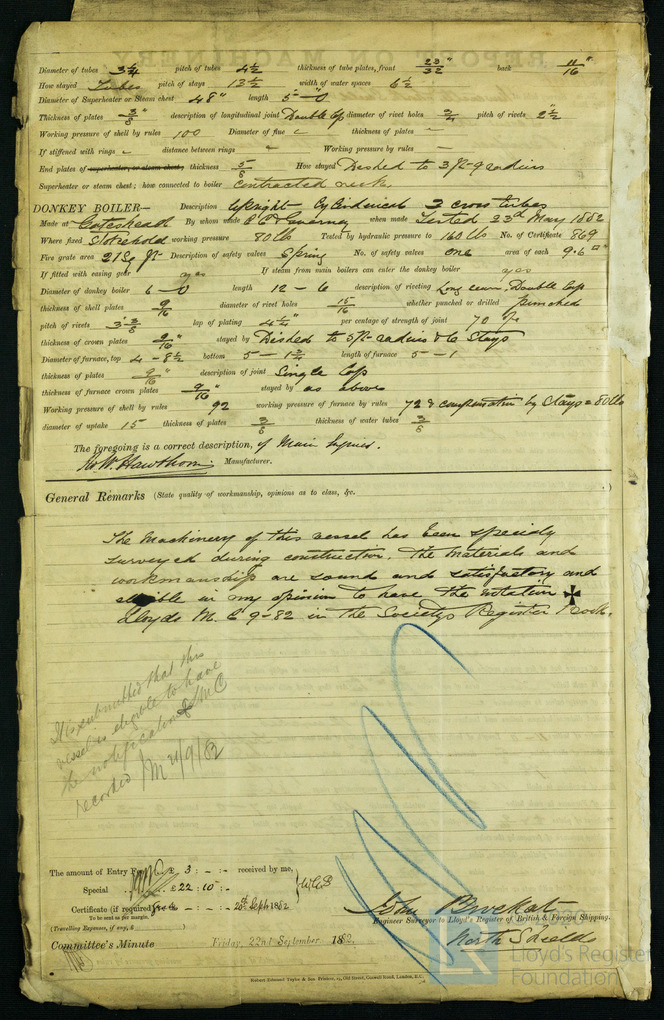 Diameter of tubes 3 1/4 pitch of tubes 4 1/2 thickness of tube plates, front 23/32" back 11/16"
How stayed Tubes pitch of stays 13 1/2 width of water spaces 6 1/2
Diameter of Superheater or Steam chest 48" length 5"-0
Thickness of plates 3/8" description of longitudinal joint Double Lap diameter of rivet holes 3/4 pitch of rivets 2 1/2"
Working pressure of shell by rules 100 Diameter of flue - thickness of plates -
If stiffened with rings - distance between rings - Working pressure by rules -
End plates of superheater, or steam chest; thickness 5/8 How stayed Dished to 3 ft-9 radius
Superheater or steam chest; how connected to boiler Contracted neck.
DONKEY BOILER— Description Upright Cylindrical 3 cross tubes
Made at Gateshead By whom made when made Tested 23rd May 1882
Where fixed Stokehold working pressure 80 lbs Tested by hydraulic pressure to 160 lbs No. of Certificate 869
Fire grate area 21 Sq ft Description of safety valves Spring No. of safety valves one area of each 9.6 □"
If fitted with easing gear yes If steam from main boilers can enter the donkey boiler yes
Diameter of donkey boiler 6-0 length 12-6 description of riveting Long seam, Double Lap
thickness of shell plates 9/16 diameter of rivet holes 15/16 whether punched or drilled punched
pitch of rivets 3 3/8 lap of plating 4 1/4" per centage of strength of joint 70 %
thickness of crown plates 9/16" stayed by Dished to 5 ft-radius & 6 Stays
Diameter of furnace, top 4-8 1/2 bottom 5-1 3/4 length of furnace 5-1
thickness of plates 9/16" description of joint Single Lap
thickness of furnace crown plates 9/16" stayed by as above
Working pressure of shell by rules 92 working pressure of furnace by rules 72 & compensation by Stays = 80 lbs
diameter of uptake 15 thickness of plates 3/8 thickness of water tubes 3/8
The foregoing is a correct description, of Main Engines.
R. W. Hawthorn Manufacturer.
General Remarks (State quality of workmanship, opinions as to class, &c.
The Machinery of this vessel has been specialy
surveyed during construction. The materials and
workmanship are sound and satisfactory and
eligible in my opinion to have the notation ✠
Lloyds M.C 9-82 in the Societys Register Book.
It is submitted that this
vessel is eligible to have
the notification ✠ LMC
recorded JM 21/9/82
The amount of Entry Fee £ 3 : - : - received by me,
Special £22 : 10 : -
Certificate (if required) - : - : - 20th Sept 1882
To be sent as per margin.
(Travelling Expenses, if any, £ )
Committee's Minute Friday, 22nd September 1882.
John
Engineer Surveyor to Lloyd's Register of British & Foreign Shipping.
North Shields
Robert Edmund Taylor & Son Printers, 19, Old Street, Goswell Road, London, E.C.
Lloyd's Register
Foundation